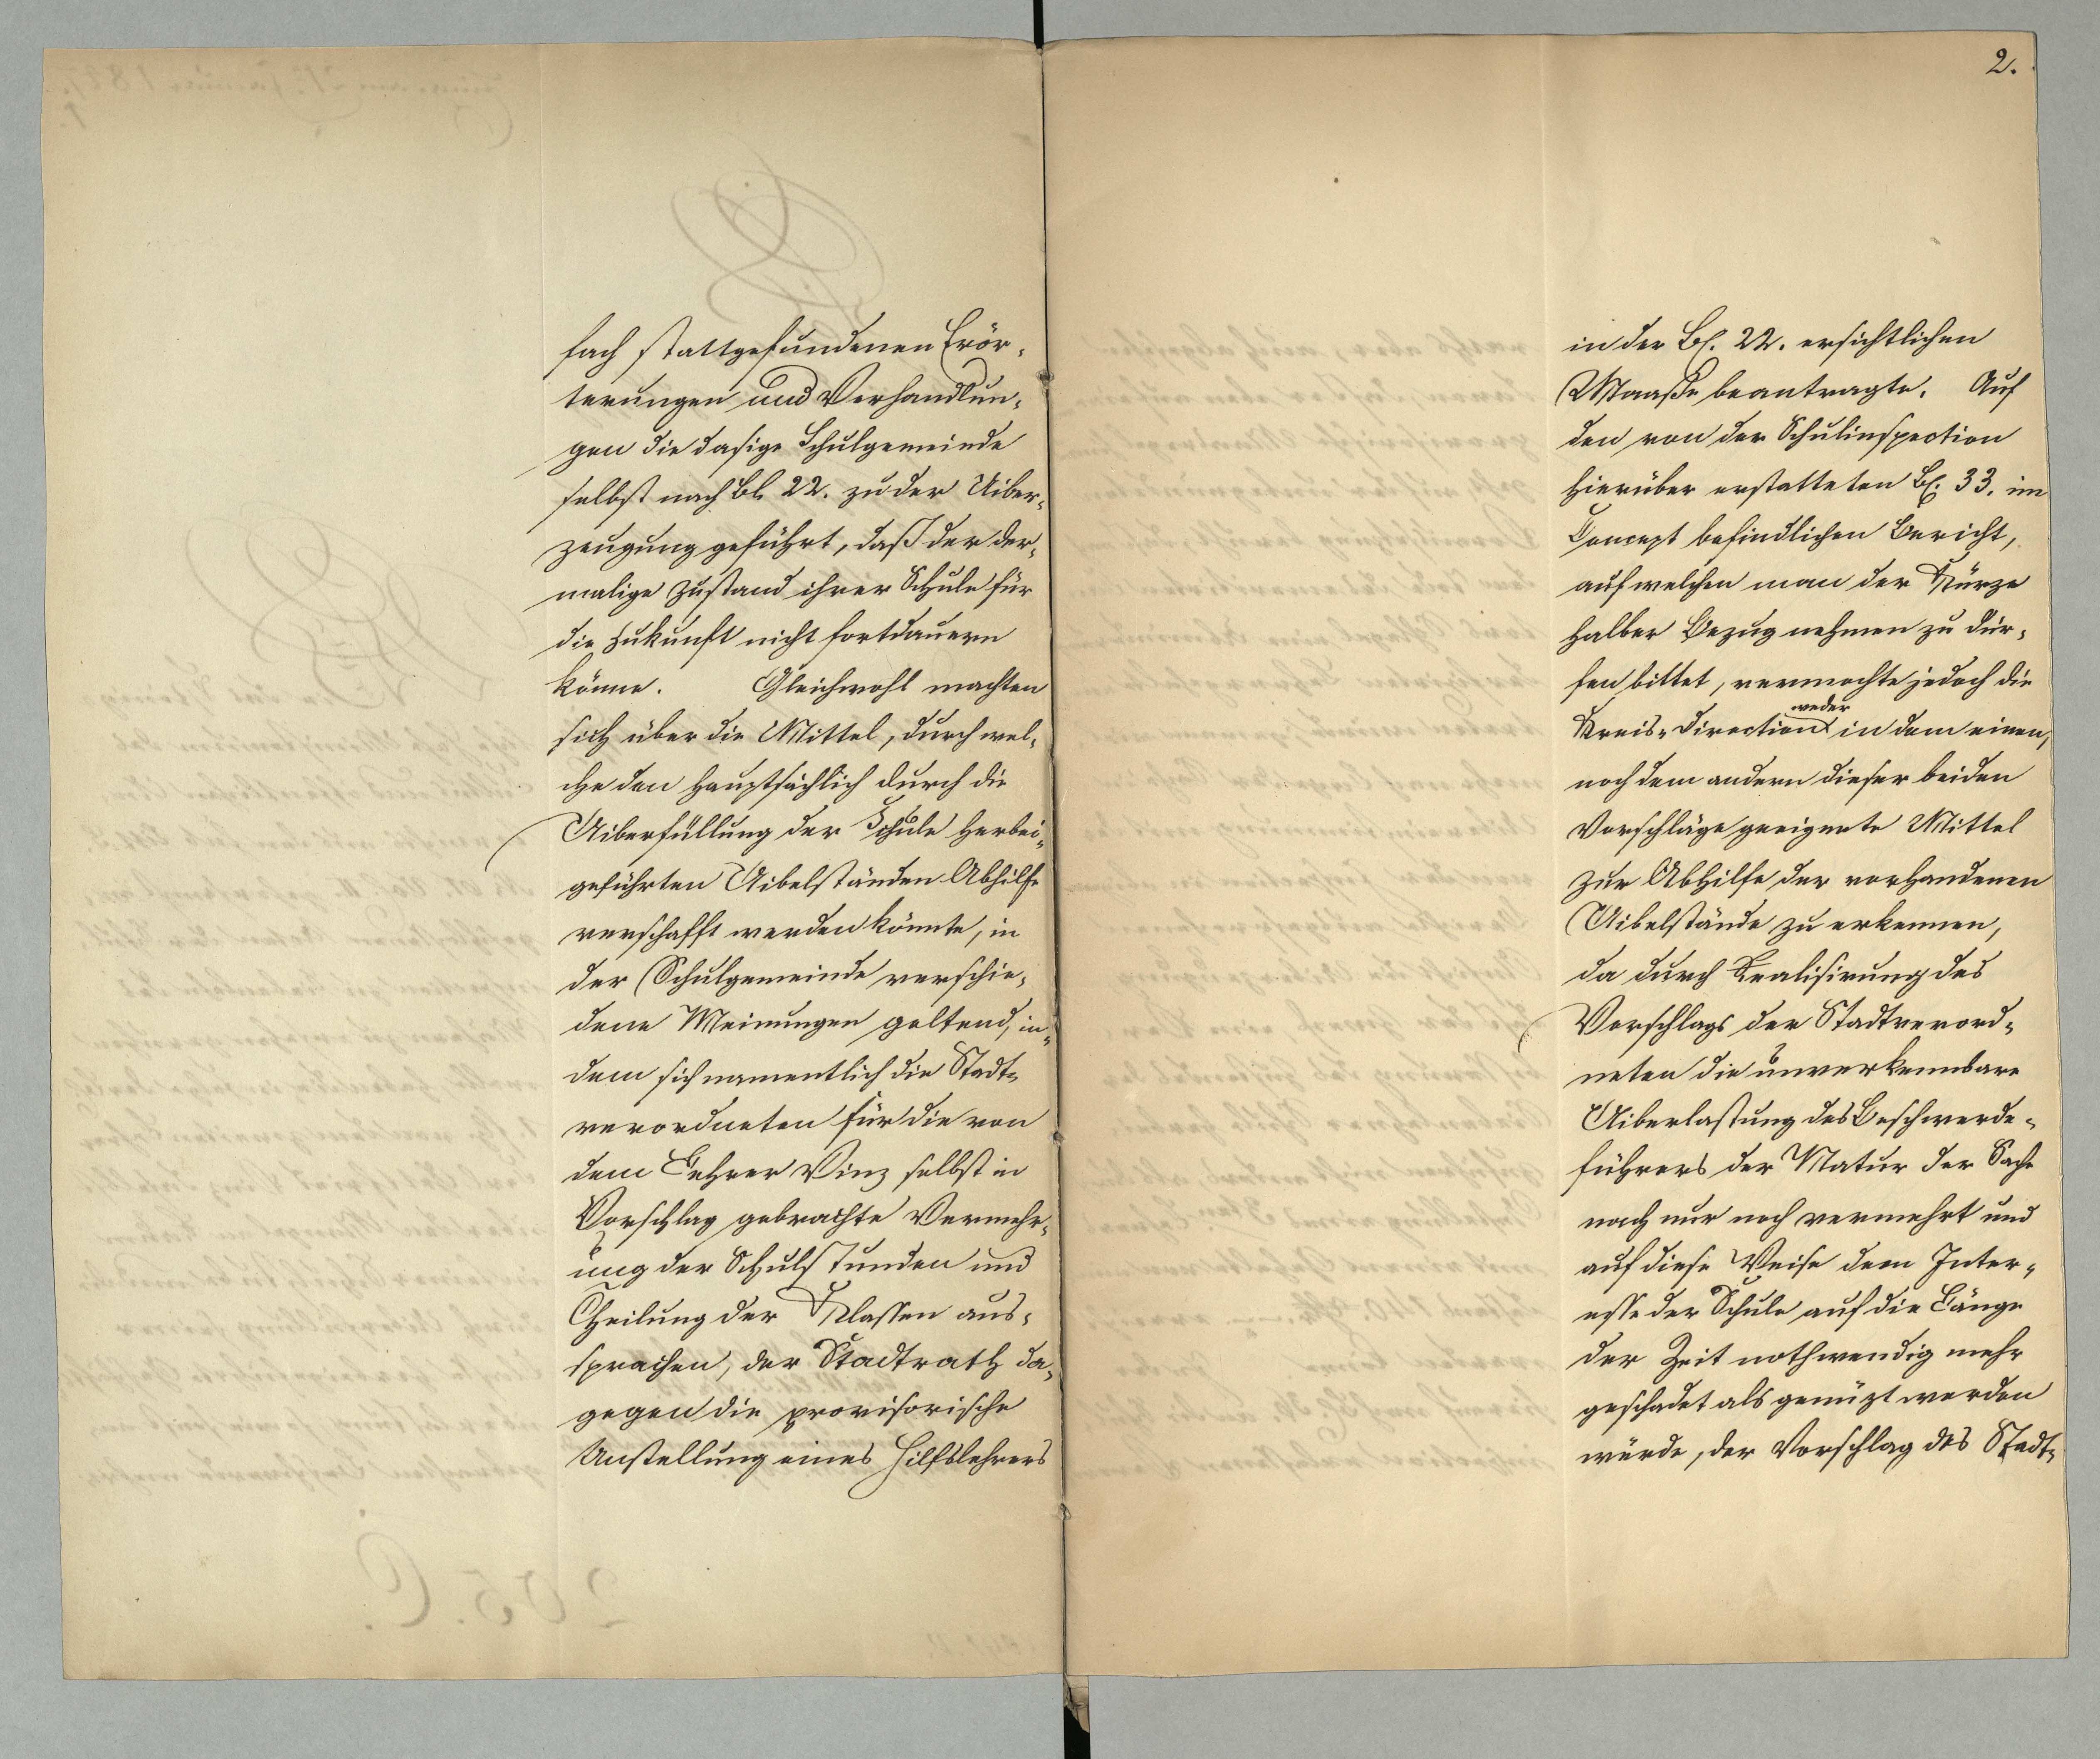 fach stattgefundenen Erör-
terungen und Verhandlun-
gen die dasige Schulgemeinde
selbst nach Bl. 22. zu der Uiber-
zeugung geführt, daß der der-
malige Zustand ihrer Schule für
die Zukunft nicht fortdauern
könne. Gleichwohl machten
sich über die Mittel, durch wel-
che den hauptsächlich durch die
Uiberfüllung der Schule herbei-
geführten Uibelständen Abhilfe
verschafft werden könnte, in
der Schulgemeinde verschie-
dene Meinungen geltend, in-
dem sich namentlich die Stadt-
verordneten für die von
dem Lehrer Vinz selbst in
Vorschlag gebrachte Vermehr-
ung der Schulstunden und
Theilung der Klassen aus-
sprachen, der Stadtrath da-
gegen die provisorische
Anstellung eines Hilfslehrers
2.
in der Bl. 22. ersichtlichen
Maaße beantragte. Auf
den von der Schulinspection
hierüber erstatteten Bl. 33. im
Concept befindlichen Bericht,
auf welchen man der Kürze
halber Bezug nehmen zu dür-
fen bittet, vermochte jedoch die
Kreis-Direction weder in dem einen,
noch dem andern dieser beiden
Vorschläge geeignete Mittel
zur Abhilfe der vorhandenen
Uibelstände zu erkennen,
da durch Realisirung des
Vorschlags der Stadtverord-
neten die unverkennbare
Uiberlastung des Beschwerde-
führers der Natur der Sache
nach nur noch vermehrt und
auf diese Weise dem Inter-
esse der Schule auf die Länge
der Zeit nothwendig mehr
geschadet als genüzt werden
würde, der Vorschlag des Stadt-